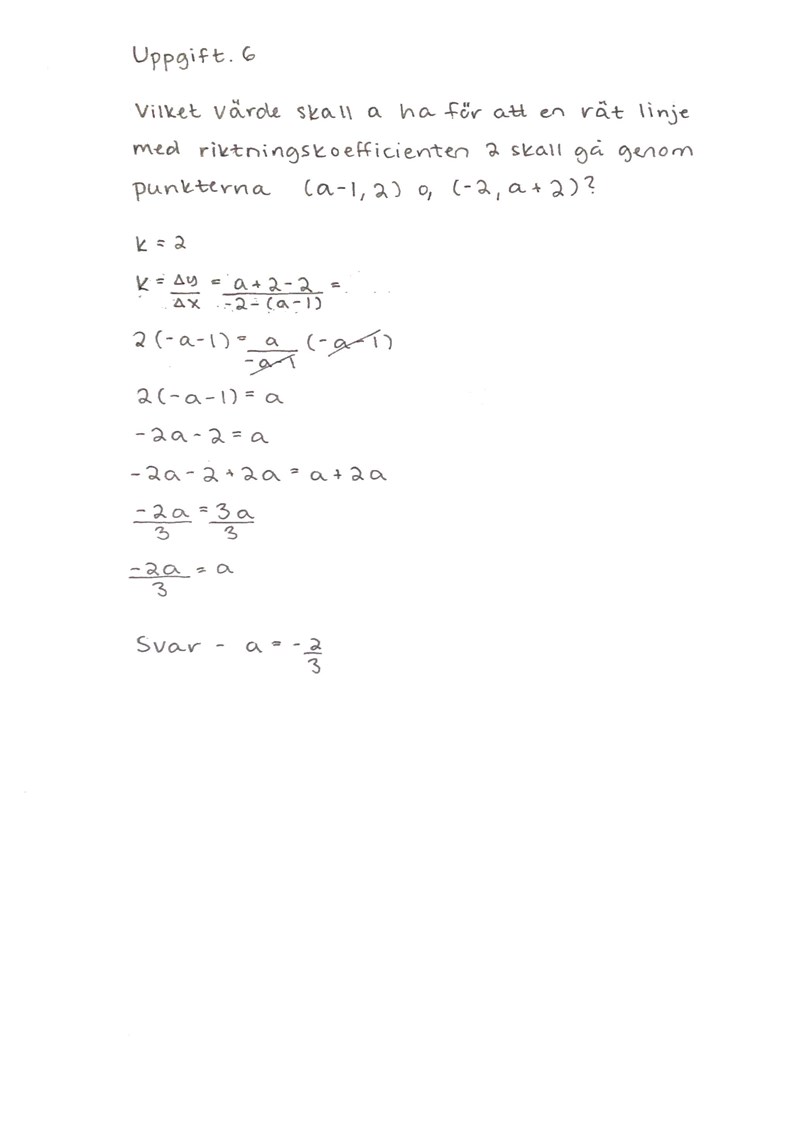 Uppgift. 6
Vilket värde skall a ha för att en rät linje
med riktningskoefficienten 2 skall gå genom
punkterna (a-1, 2) o, (-2, a + 2)?
k = 2
k = Δy/Δx = a + 2 - 2 / -2 - (a-1) =
2(-a-1) = a/-a-1 (-a-1)
2(-a-1) = a
-2a - 2 = a
-2a - 2 + 2a = a + 2a
-2a/3 = 3a/3
-2a/3 = a
Svar - a = -2/3